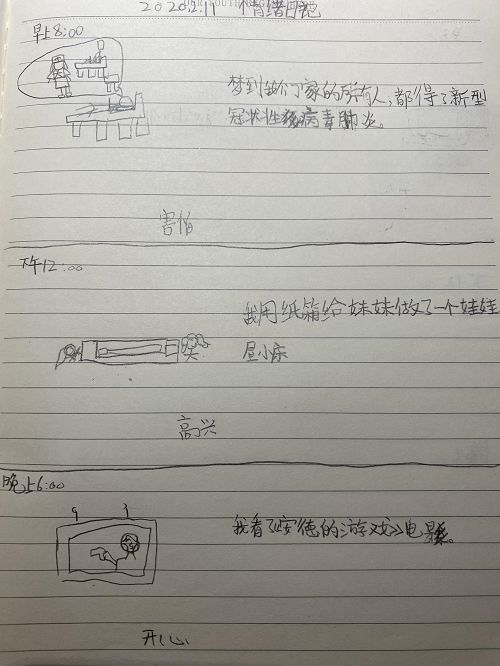 2020.2.11 情绪日记
早上8:00
梦到我们家的所有人,都得了新型
冠状性病毒肺炎。
害怕
下午12:00
我用纸箱给妹妹做了一个娃娃
屋小床
高兴
晚上6:00
我看了《安德的游戏》电影。
开心